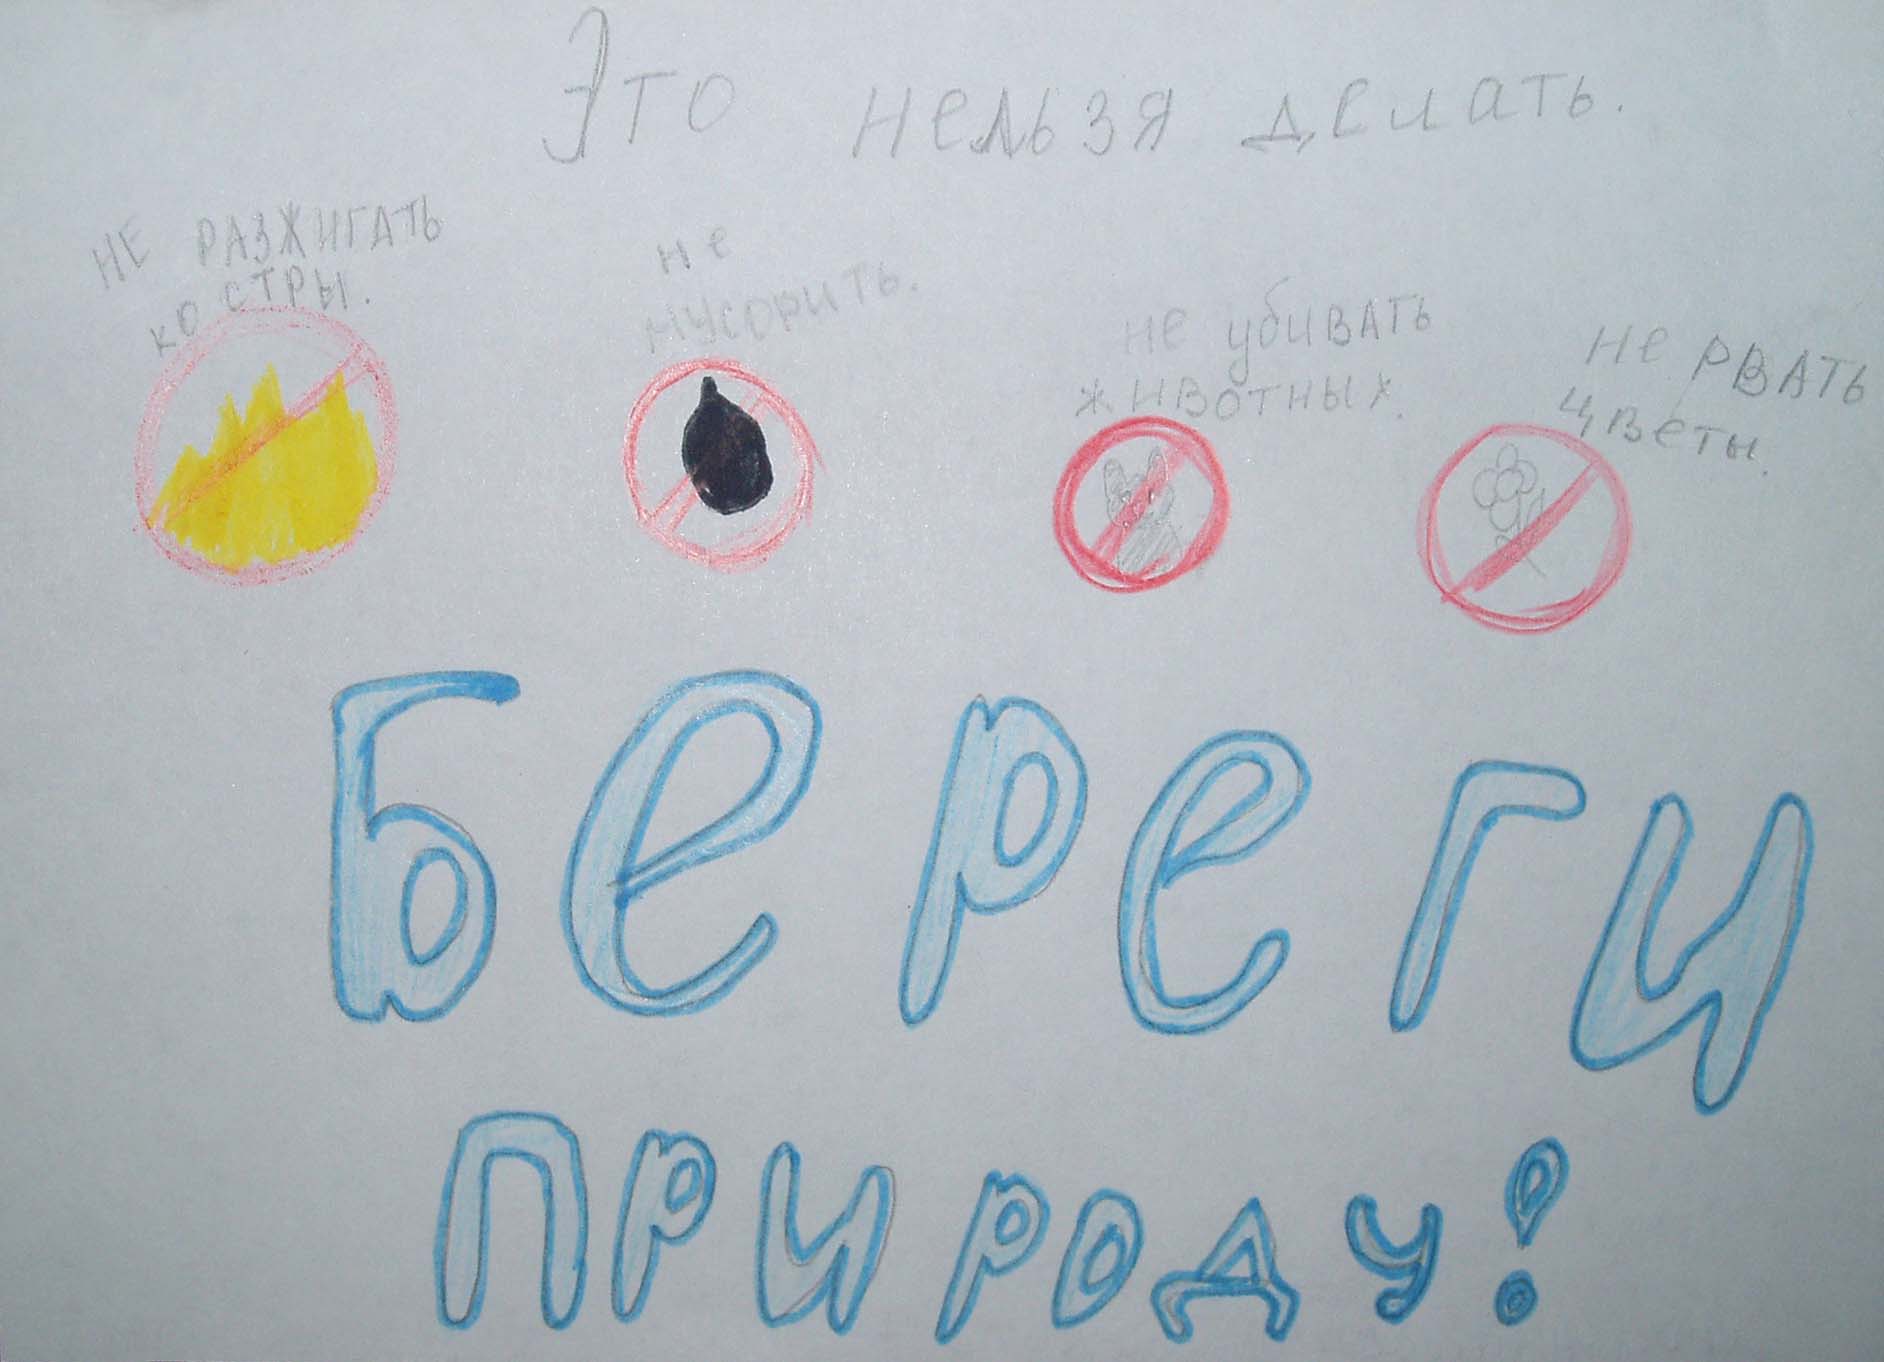 Это нельзя делать.
НЕ РАЗЖИГАТЬ
костры.
не
мусорить.
не убивать
животных.
не рвать
цветы.
Береги
природу!